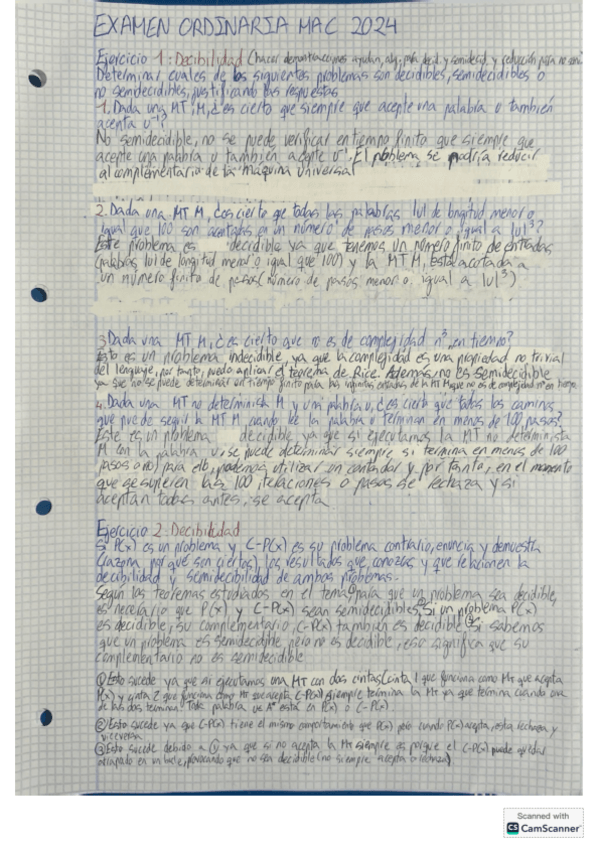 EXAMEN ORDINARIA MAC 2024
Ejercicio 1: Decibilidad (hacer demostraciones ayudan, obj: para decid. y semidecid. y reducción para no semi.
Determinar cuales de los siguientes problemas son decidibles, semidecidibles o
no semidecidibles, justificando las respuestas
1. Dada una MT, M, ¿es cierto que siempre que acepte una palabra u también
acepta u⁻¹?
No semidecidible, no se puede verificar en tiempo finito que siempre que
acepte una palabra u también acepte u⁻¹. El problema se podría reducir
al complementario de la maquina universal
2. Dada una MT M, ¿es cierto que todas las palabras |u| de longitud menor o
igual que 100 son aceptadas en un número de pasos menor o igual a |u|³?
Este problema es decidible ya que tenemos un número finito de entradas
(palabras |u| de longitud menor o igual que 100) y la MT M, esta acotada a
un número finito de pesos (número de pasos menor o igual a |u|³)
3. Dada una MT M, ¿es cierto que no es de complejidad n³, en tiempo?
Esto es un problema indecidible, ya que la complejidad es una propiedad no trivial
del lenguaje, por tanto, puedo aplicar el teorema de Rice. Además, no es semidecidible
ya que no se puede determinar un tiempo finito para las infinitas entradas de la MT M que no es de complejidad n³ en tiempo
4. Dada una MT no determinista M y una palabra u, ¿es cierto que todos los caminos
que puede seguir la MT M cuando lee la palabra u terminan en menos de 100 pasos?
Este es un problema decidible ya que si ejecutamos la MT no determinista
M con la palabra u, se puede determinar siempre si termina en menos de 100
pasos o no, para ello, podemos utilizar un contador y por tanto, en el momento
que se superen las 100 iteraciones o pasos se rechaza y si
aceptan todas antes, se acepta.
Ejercicio 2: Decibilidad
Si P(x) es un problema y C-P(x) es su problema contrario, enuncia y demuestra
(razona por qué son ciertos) los resultados que conozcas y que relacionen la
decibilidad y semidecibilidad de ambos problemas.
Según los teoremas estudiados en el tema, ① para que un problema sea decidible,
es necesario que P(x) y C-P(x) sean semidecidibles. ② Si un problema P(x)
es decidible, su complementario, C-P(x) también es decidible. ③ Si sabemos
que un problema es semidecidible pero no es decidible, eso significa que su
complementario no es semidecidible
① Esto sucede ya que si ejecutamos una MT con dos cintas (cinta 1 que funciona como MT que acepta
P(x) y cinta 2 que funciona como MT que acepta C-P(x)) siempre termina la MT ya que termina cuando una
de las dos termina. Toda palabra de A* está en P(x) o C-P(x).
② Esto sucede ya que C-P(x) tiene el mismo comportamiento que P(x) pero cuando P(x) acepta, esta rechaza y
viceversa.
③ Esto sucede debido a ① ya que si no acepta la MT siempre es porque el C-P(x) puede quedar
atrapado en un bucle, provocando que no sea decidible (no siempre acepta o rechaza)
Scanned with
CS CamScanner